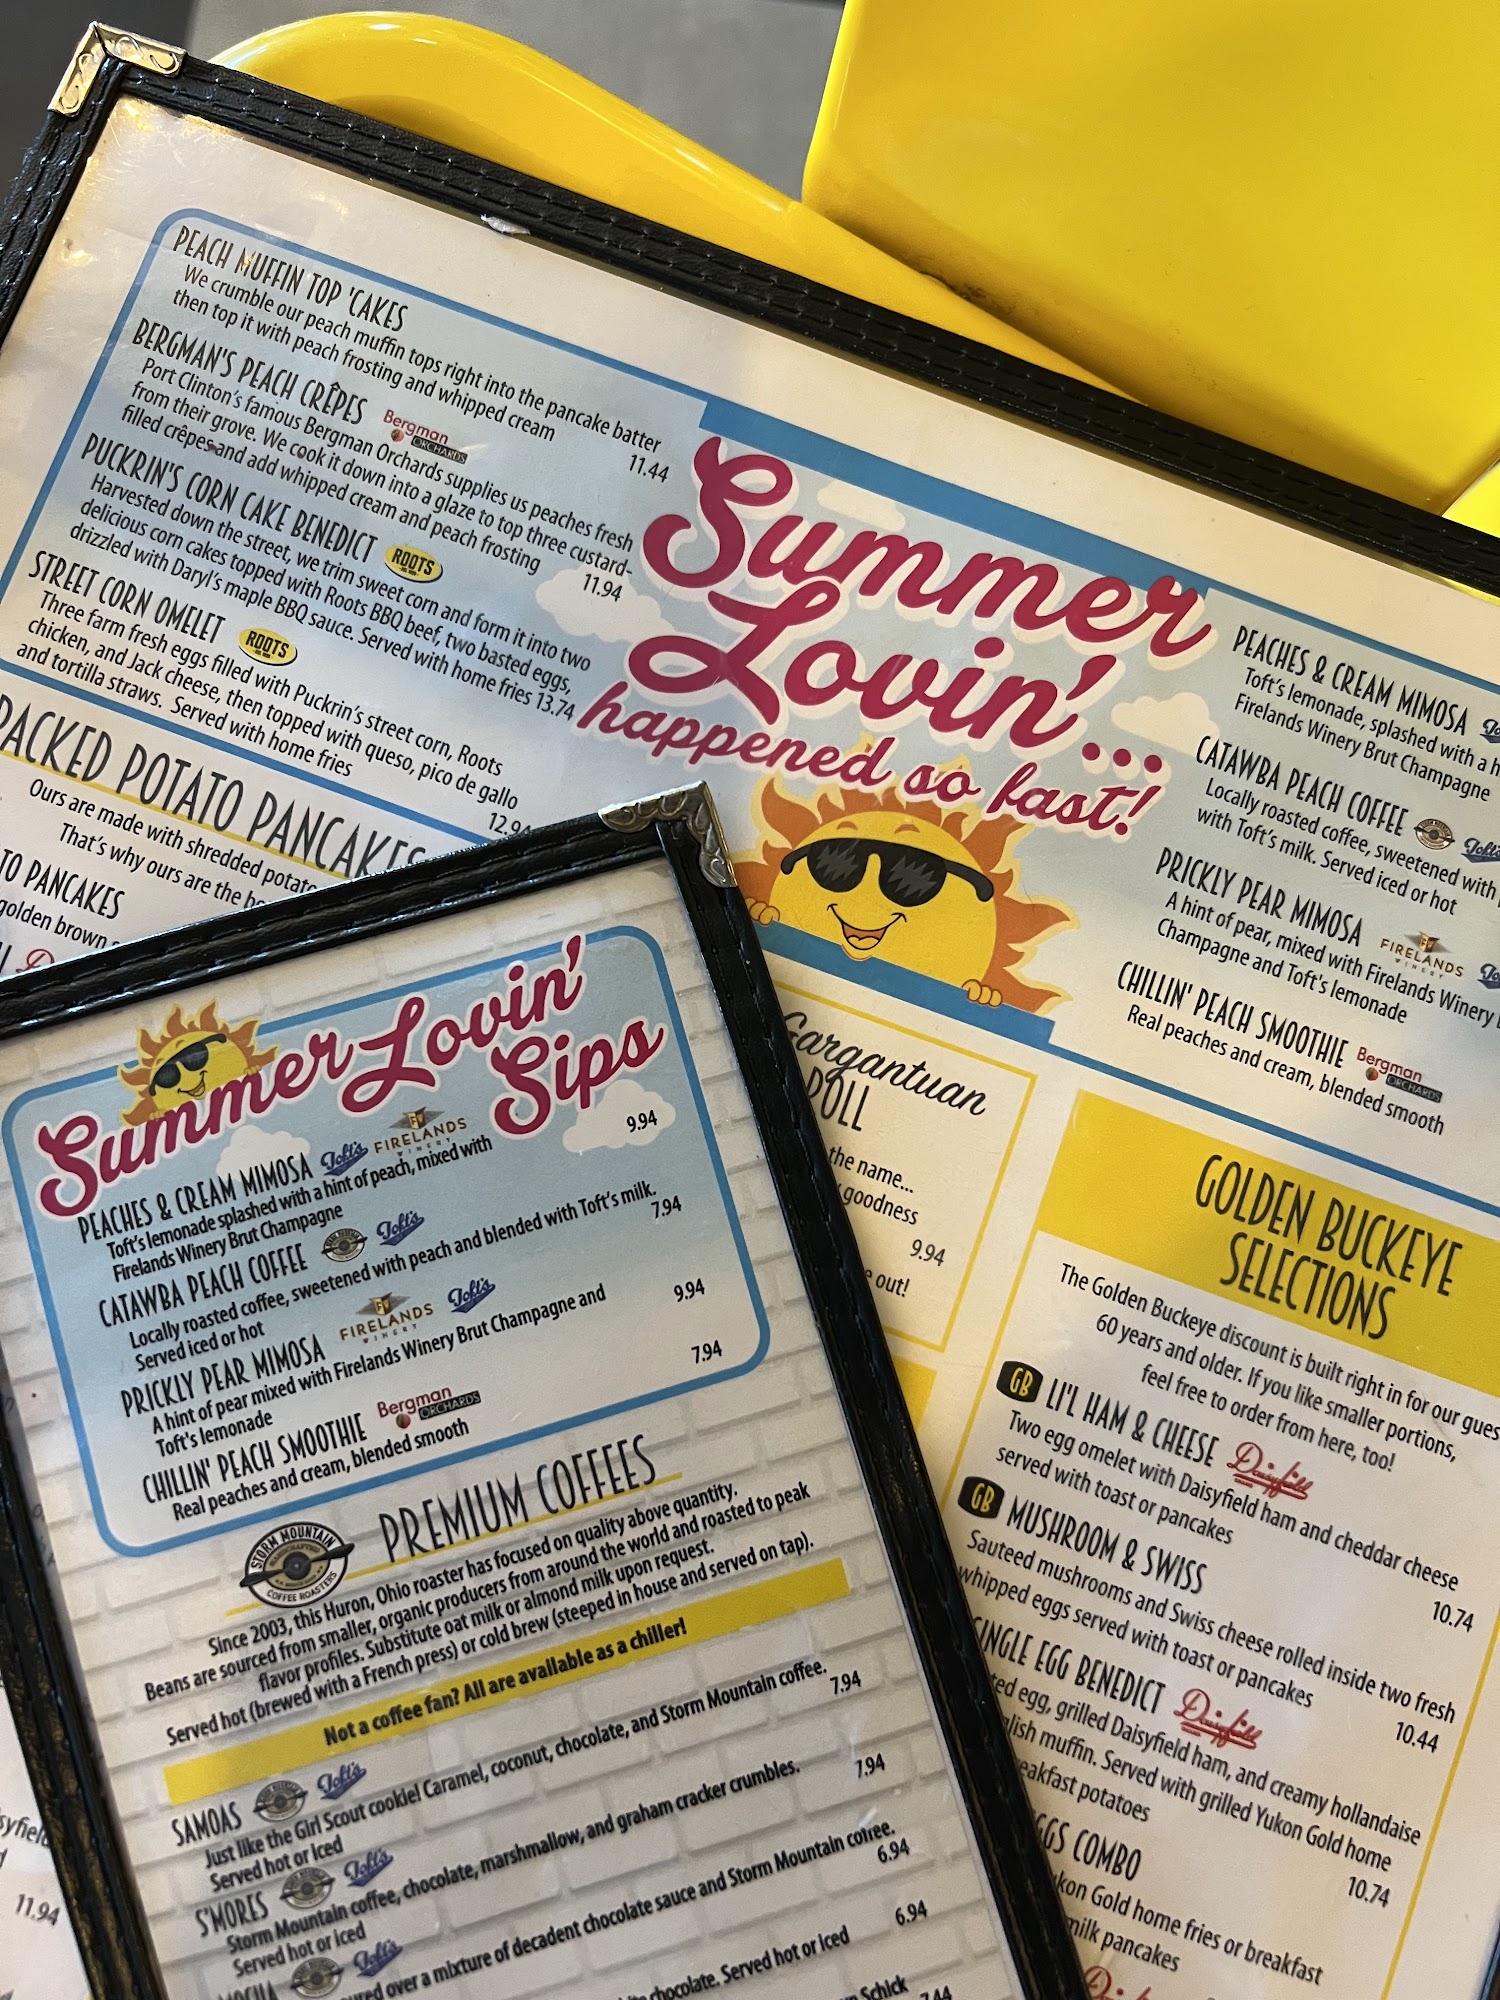 PEACH MUFFIN TOP 'CAKES
We crumble our peach muffin tops right into the pancake batter
then top it with peach frosting and whipped cream
11.44
BERGMAN'S PEACH CRÊPES
Bergman
ORCHARDS
Port Clinton's famous Bergman Orchards supplies us peaches fresh
from their grove. We cook it down into a glaze to top three custard-
filled crêpes and add whipped cream and peach frosting
11.94
PUCKRIN'S CORN CAKE BENEDICT
ROOTS
Harvested down the street, we trim sweet corn and form it into two
delicious corn cakes topped with Roots BBQ beef, two basted eggs,
drizzled with Daryl's maple BBQ sauce. Served with home fries 13.74
STREET CORN OMELET
ROOTS
Three farm fresh eggs filled with Puckrin's street corn, Roots
chicken, and Jack cheese, then topped with queso, pico de gallo
and tortilla straws. Served with home fries
12.94
Summer
Lovin'...
happened so fast!
PEACHES & CREAM MIMOSA
Toft's lemonade, splashed with a
Firelands Winery Brut Champagne
CATAWBA PEACH COFFEE
Toft's
Locally roasted coffee, sweetened with
with Toft's milk. Served iced or hot
PRICKLY PEAR MIMOSA
FIRELANDS
WINERY
A hint of pear, mixed with Firelands Winery
Champagne and Toft's lemonade
CHILLIN' PEACH SMOOTHIE
Bergman
ORCHARDS
Real peaches and cream, blended smooth
PACKED POTATO PANCAKES
Ours are made with shredded
That's why ours are the
TO PANCAKES
golden brown
Gargantuan
ROLL
the name...
goodness
9.94
out!
GOLDEN BUCKEYE
SELECTIONS
The Golden Buckeye discount is built right in for our
60 years and older. If you like smaller portions,
feel free to order from here, too!
GB LI'L HAM & CHEESE
Daisyfield
Two egg omelet with Daisyfield ham and cheddar cheese
served with toast or pancakes
10.74
GB MUSHROOM & SWISS
Sauteed mushrooms and Swiss cheese rolled inside two fresh
whipped eggs served with toast or pancakes
10.44
INGLE EGG BENEDICT
Daisyfield
ted egg, grilled Daisyfield ham, and creamy hollandaise
glish muffin. Served with grilled Yukon Gold home
eakfast potatoes
10.74
GGS COMBO
ukon Gold home fries or breakfast
milk pancakes
11.94
Summer Lovin'
Sips
PEACHES & CREAM MIMOSA
Toft's
FIRELANDS
WINERY
9.94
Toft's lemonade splashed with a hint of peach, mixed with
Firelands Winery Brut Champagne
CATAWBA PEACH COFFEE
Toft's
7.94
Locally roasted coffee, sweetened with peach and blended with Toft's milk.
Served iced or hot
PRICKLY PEAR MIMOSA
FIRELANDS
WINERY
Toft's
9.94
A hint of pear mixed with Firelands Winery Brut Champagne and
Toft's lemonade
CHILLIN' PEACH SMOOTHIE
Bergman
ORCHARDS
7.94
Real peaches and cream, blended smooth
STORM MOUNTAIN
COFFEE ROASTERS
PREMIUM COFFEES
Since 2003, this Huron, Ohio roaster has focused on quality above quantity.
Beans are sourced from smaller, organic producers from around the world and roasted to peak
flavor profiles. Substitute oat milk or almond milk upon request.
Served hot (brewed with a French press) or cold brew (steeped in house and served on tap).
Not a coffee fan? All are available as a chiller!
SAMOAS
Toft's
7.94
Just like the Girl Scout cookie! Caramel, coconut, chocolate, and Storm Mountain coffee.
Served hot or iced
S'MORES
Toft's
7.94
Storm Mountain coffee, chocolate, marshmallow, and graham cracker crumbles.
Served hot or iced
MOCHA
Toft's
6.94
ured over a mixture of decadent chocolate sauce and Storm Mountain coffee.
6.94
chocolate. Served hot or iced
Schick
7.44